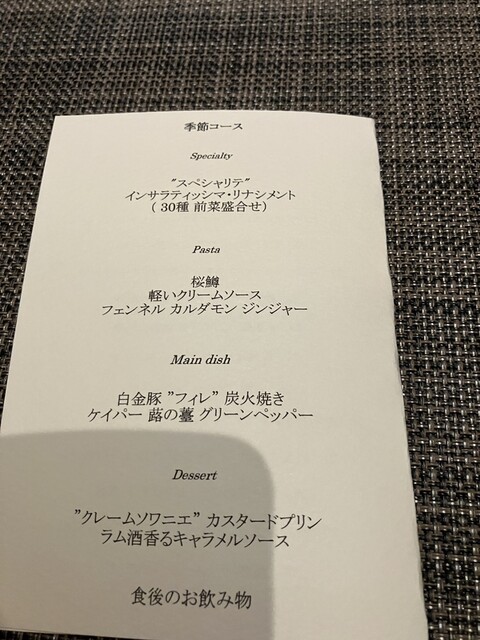 季節コース
Specialty
"スペシャリテ"
インサラティッシマ・リナシメント
( 30種 前菜盛合せ)
Pasta
桜鱒
軽いクリームソース
フェンネル カルダモン ジンジャー
Main dish
白金豚 "フィレ" 炭火焼き
ケイパー 蕗の薹 グリーンペッパー
Dessert
"クレームソワニエ" カスタードプリン
ラム酒香るキャラメルソース
食後のお飲み物